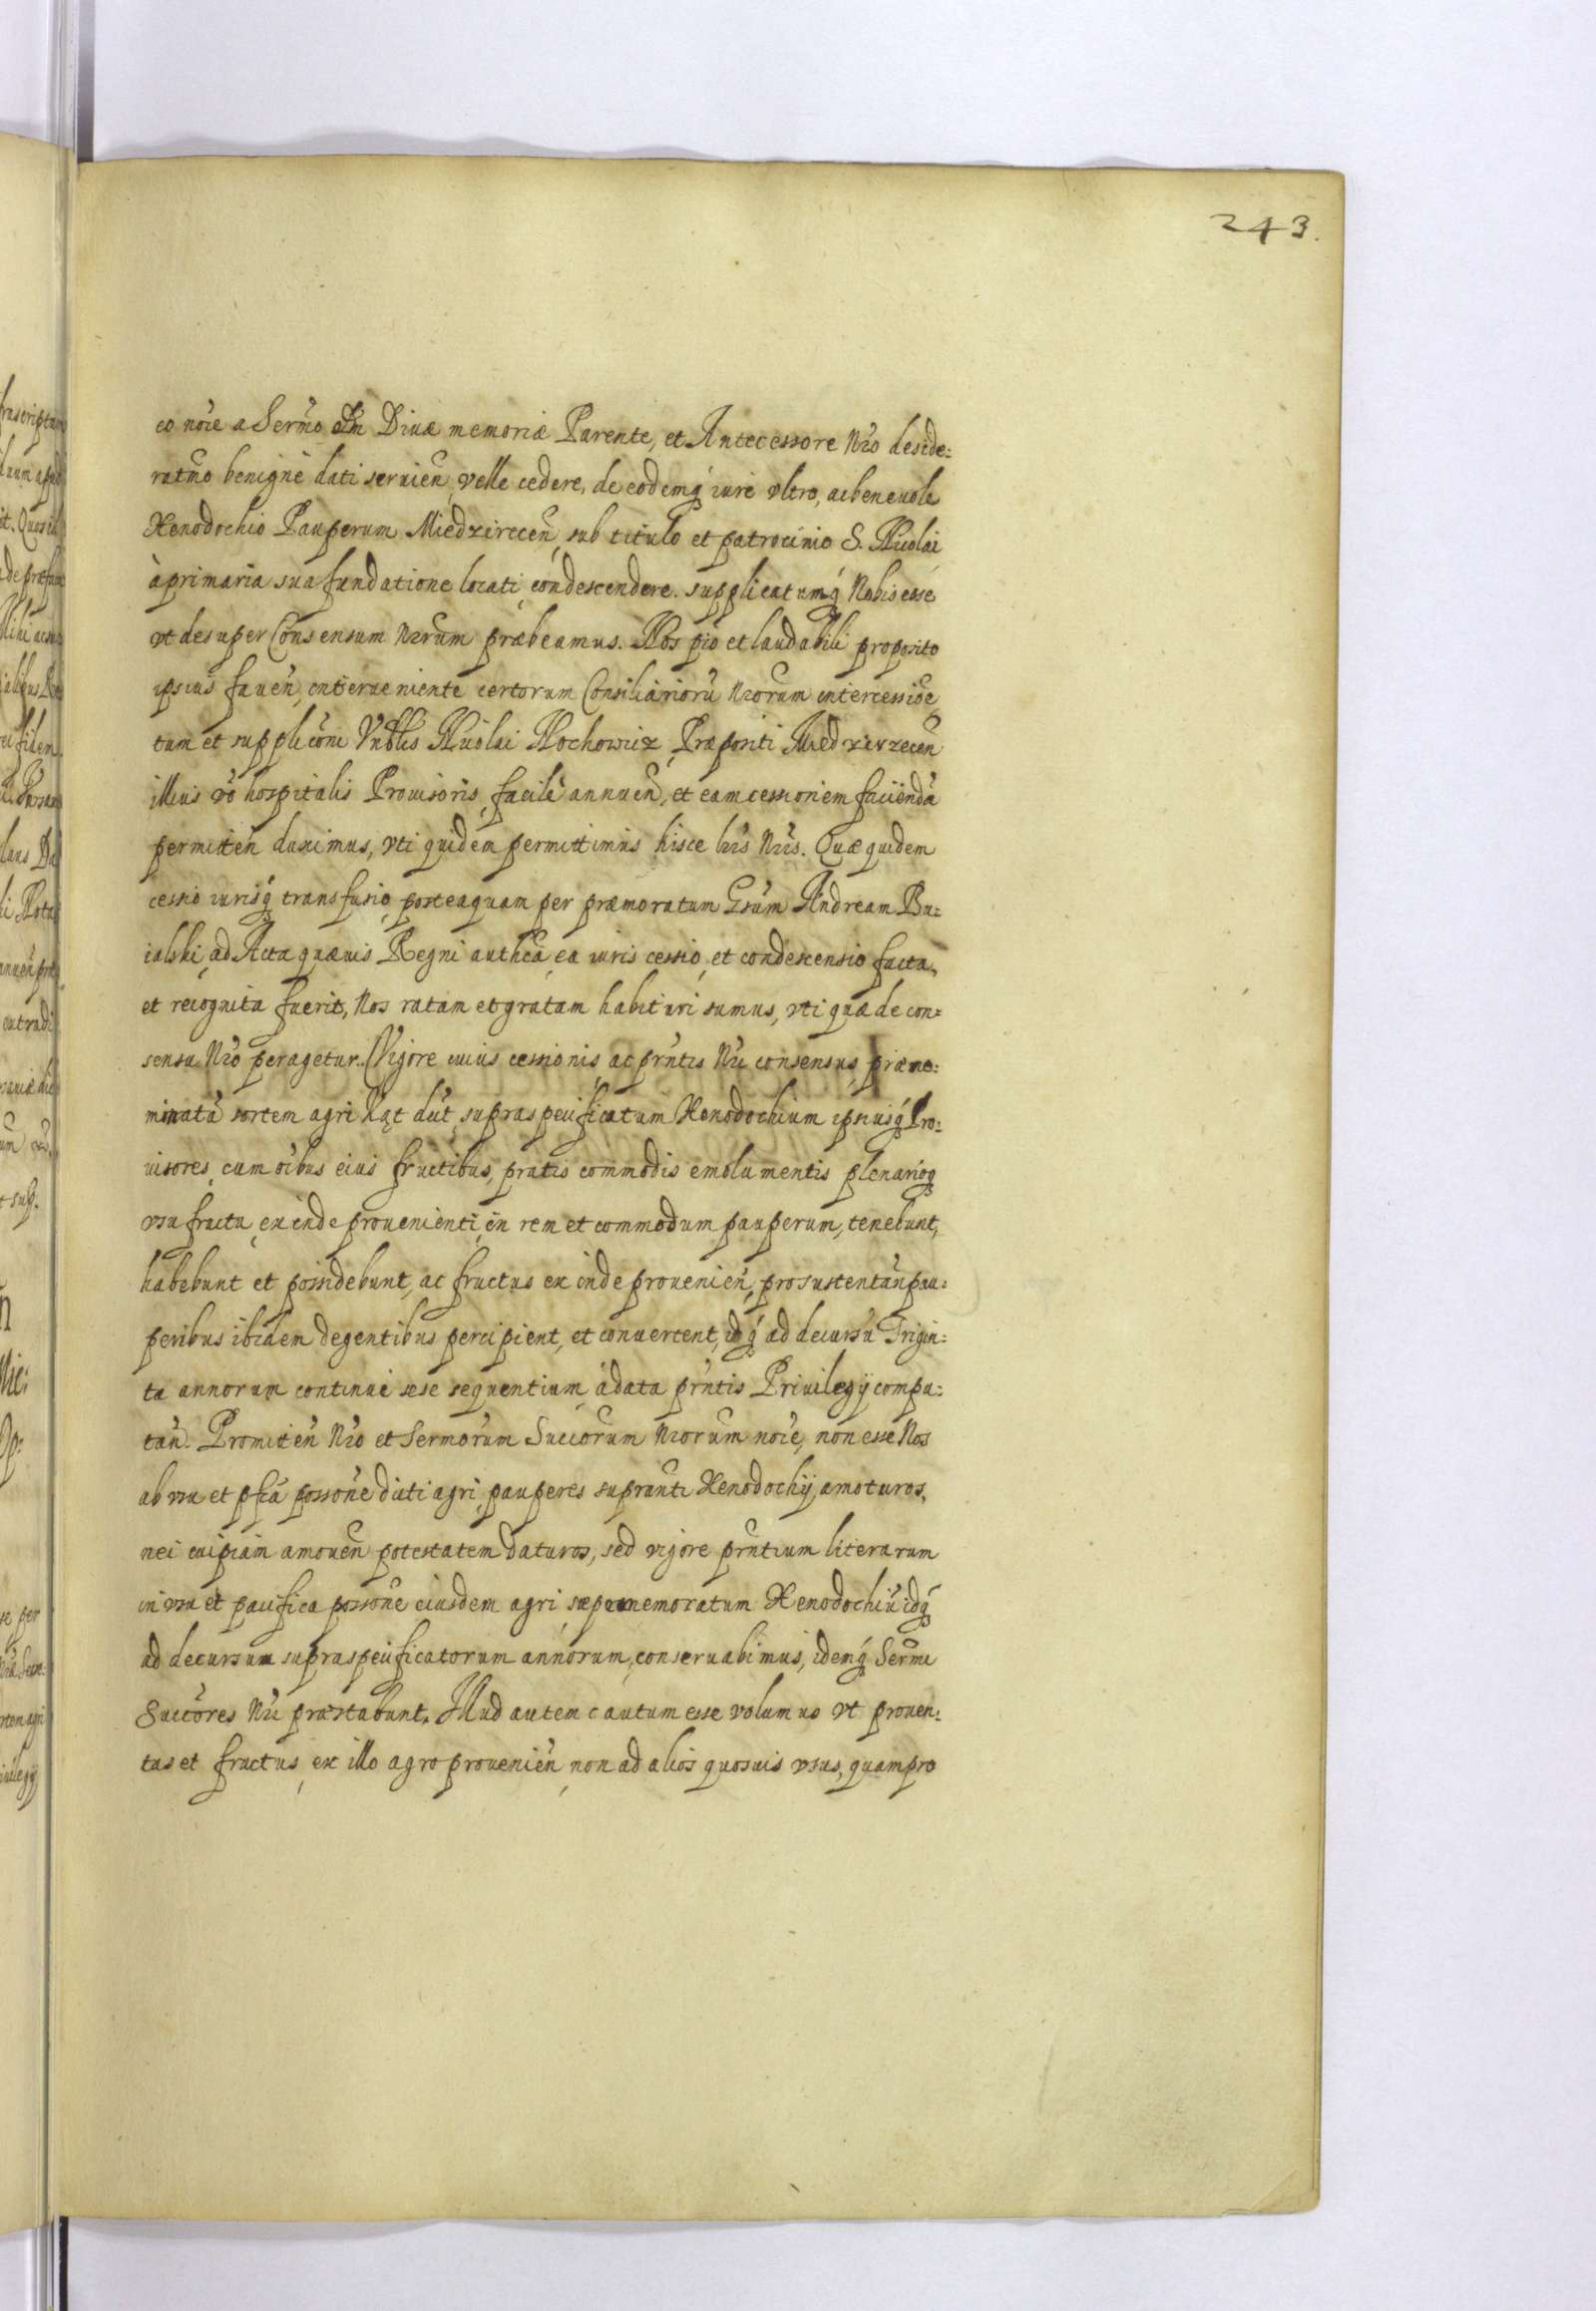 243.
eo no͠ie a Serm̃o olim Diuæ memoriæ Parente, et Antecessore Nr̃o deside:
ratm̃o benignè dati seruien̄, velle cedere, de eodemq́ iure vltro, ac beneuole
Xenodochio Pauperum Miedzirecen̄, sub titulo et patrocinio S. Nicolai
à primaria sua fundatione locati, condescendere. supplicatumq́ Nobis esse
vt desuper Consensum Nrũm præbeamus. Nos pio et laudabili proposito
ipsius fauen̄, interueniente certorum Consiliariorũ Nrorũm intercessio͠e,
tum et supplico͠ni Vnblis Nicolai Nochowicz Præpositi Miedzirzecen̄
illius vo͠ hospitalis Prouisoris, facilè annuen̄, et eam cessionem faciendã
permitten̄ duximus, vti quidem permittimus hisce lr̃is Nr̃is. Quæ quidem
cessio iurisq́ transfusio, posteaquam per præmoratum Gsum̃ Andream Bu:
ialski, ad Acta quæuis Regni authca͠, ea iuris cessio, et condescensio facta,
et recognita fuerit, Nos ratam et gratam habituri sumus, vti quæ de con:
sensu Nr̃o peragetur. Vigore cuius cessionis, ac prñtis Nr̃i consensus, præno:
minatã sortem agri supraspecificatum Xenodochium ipsiusq́ Pro:
uisores, cum oi͠bus eius fructibus, pratis commodis emolumentis plenarioq́
vsufructu, exinde prouenienti, in rem et commodum pauperum, tenebunt,
habebunt et possidebunt, ac fructus ex inde prouenien̄, pro sustentan̄ pau:
peribus ibidem degentibus percipient, et conuertent, idq́ ad decursũ Trigin:
ta annorum continuè sese sequentium, à data prñtis Priuilegij compu:
tan̄. Promitten̄ Nr̃o et Sermorũm Succorũm Nrorũm no͠ie, non esse Nos
ab vsu et pfca͠ posso͠ne dicti agri, pauperes supranti͠ Xenodochij, amoturos,
nec cuipiam amouen̄ potestatem daturos, sed vigore prñtium literarum
in vsu et pacifica posso͠ne eiusdem agri, sæpememoratum Xenodochiũ idq́
ad decursum supraspecificatorum annorum, conseruabimus, idemq́ Sermi͠
Succores͠ Nr̃i præstabunt. Illud autem cautum esse volumus vt prouen:
tus et fructus, ex illo agro prouenien̄, non ad alios quosuis vsus, quam pro